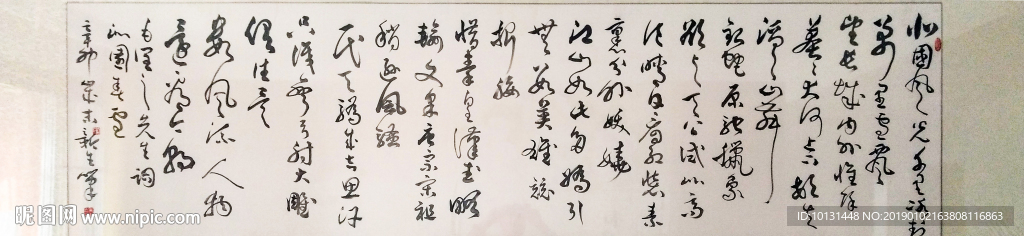 北国风光千里冰封
万里雪飘
望长城内外惟余
莽莽大河上下顿失
滔滔山舞
银蛇原驰蜡象
欲与天公试比高
须晴日看红装素
裹分外妖娆
江山如此多娇引
无数英雄竞
折腰
惜秦皇汉武略
输文采唐宗宋祖
稍逊风骚
一代天骄成吉思汗
只识弯弓射大雕
俱往矣
数风流人物
还看今朝
毛泽东先生词
沁园春雪
辛卯岁末
昵图网 www.nipic.com
ID:10131448 NO:20190102163808116863